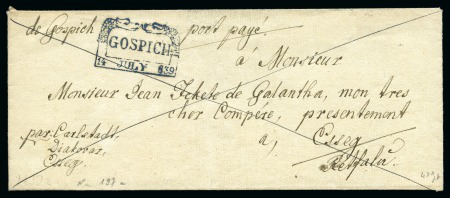 de Gospich port payé.
GOSPICH
14 JULY 839
à Monsieur
Monsieur Jean Fekete de Galantha, mon tres
cher Compére, presentement
à, Esseg
Retfala
par Carlstadt,
Diakovar,
Esseg.